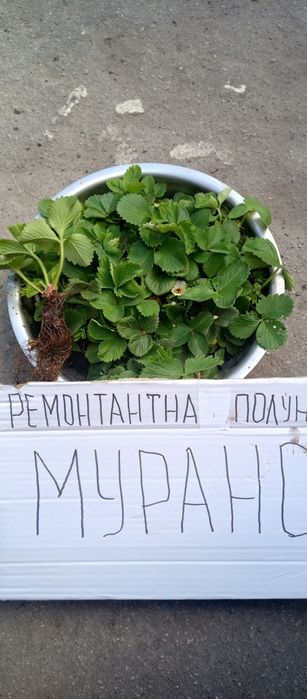 РЕМОНТАНТНА ПОЛУН
МУРАНО